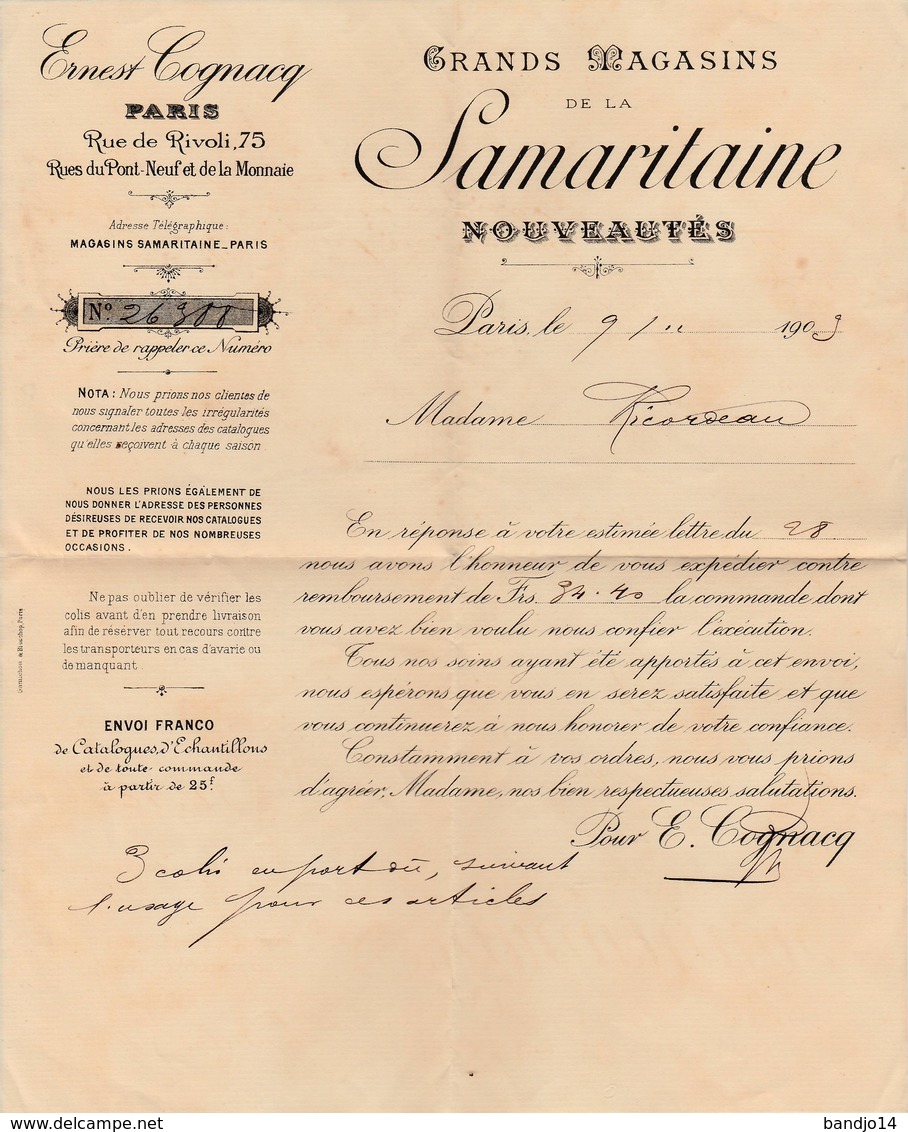 Ernest Cognacq
PARIS
Rue de Rivoli, 75
Rues du Pont-Neuf et de la Monnaie
Adresse Télégraphique:
MAGASINS SAMARITAINE_PARIS
No. 26300
Prière de rappeler ce Numéro
NOTA: Nous prions nos clientes de
nous signaler toutes les irrégularités
concernant les adresses des catalogues
qu'elles reçoivent à chaque saison
NOUS LES PRIONS ÉGALEMENT DE
NOUS DONNER L'ADRESSE DES PERSONNES
DÉSIREUSES DE RECEVOIR NOS CATALOGUES
ET DE PROFITER DE NOS NOMBREUSES
OCCASIONS.
Ne pas oublier de vérifier les
colis avant d'en prendre livraison
afin de réserver tout recours contre
les transporteurs en cas d'avarie ou
de manquant.
ENVOI FRANCO
de Catalogues, d'Echantillons
et de toute commande
à partir de 25f.
GRANDS MAGASINS
DE LA
Samaritaine
NOUVEAUTÉS
Paris, le 9/11 1903
Madame Ricordeau
En réponse à votre estimée lettre du 28
nous avons l'honneur de vous expédier contre
remboursement de Frs. 34.40 la commande dont
vous avez bien voulu nous confier l'exécution.
Tous nos soins ayant été apportés à cet envoi,
nous espérons que vous en serez satisfaite et que
vous continuerez à nous honorer de votre confiance.
Constamment à vos ordres, nous vous prions
d'agréer, Madame, nos bien respectueuses salutations.
Pour E. Cognacq
3 colis en port dû, suivant
l'usage pour ces articles
bandjo14